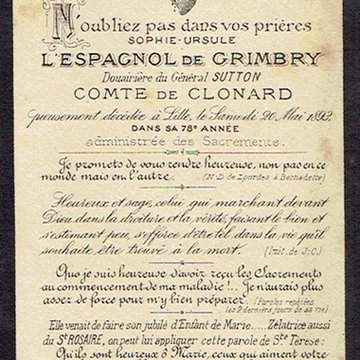 N'oubliez pas dans vos prières
SOPHIE-URSULE
L'ESPAGNOL DE GRIMBRY
Douairière du Général SUTTON
COMTE DE CLONARD
Pieusement décédée à Lille, le Samedi 20 Mai 1893
DANS SA 78e ANNÉE
administrée des Sacrements.
Je promets de vous rendre heureuse, non pas en ce
monde mais en l'autre. (N.D de Lourdes à Bernadette)
Heureux et sage, celui qui marchant devant
Dieu dans la droiture et la vérité, faisant le bien et
s'estimant peu, s'efforce d'être tel dans la vie, qu'il
souhaite, être trouvé à la mort. (Imit. de J.C.)
Que je suis heureuse d'avoir reçu les Sacrements
au commencement de ma maladie !.. Je n'aurais plus
assez de force pour m'y bien préparer. (Paroles répétées
les 9 derniers jours de sa vie)
Elle venait de faire son jubilé d'Enfant de Marie..... Zélatrice aussi
du St ROSAIRE, on peut lui appliquer cette parole de Ste Térèse:
Qu'ils sont heureux ô Marie, ceux qui aiment votre